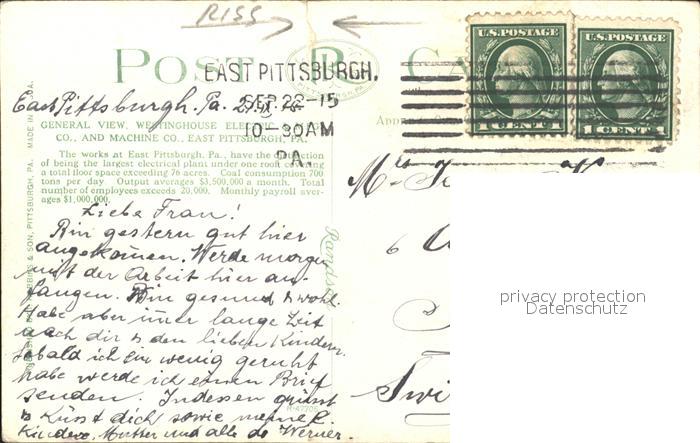 RISS
POST CA
U.S. POSTAGE
U.S. POSTAGE
1 CENT 1
1 CENT 1
EAST PITTSBURGH.
SEP 26-15
10-30AM
PA.
East Pittsburgh. Pa.
GENERAL VIEW, WESTINGHOUSE ELECTRIC
CO., AND MACHINE CO., EAST PITTSBURGH, PA.
The works at East Pittsburgh, Pa., have the distinction
of being the largest electrical plant under one roof covering
a total floor space exceeding 76 acres. Coal consumption 700
tons per day. Output averages $3,500,000 a month. Total
number of employees exceeds 20,000. Monthly payroll aver-
ages $1,000,000.
Liebe Frau!
Bin gestern gut hier
angekommen. Werde morgen
mit der Arbeit hier an-
fangen. Bin gesund & wohl.
Habe aber immer lange Zeit
nach dir & den lieben Kindern.
Sobald ich ein wenig geruht
habe werde ich einen Brief
senden. Indessen grüsst
& küsst dich sowie meine l.
Kinder, Mutter und alle de Werner.
Mrs
6
Swi
MADE IN U.S.A.
R-47705
privacy protection
Datenschutz